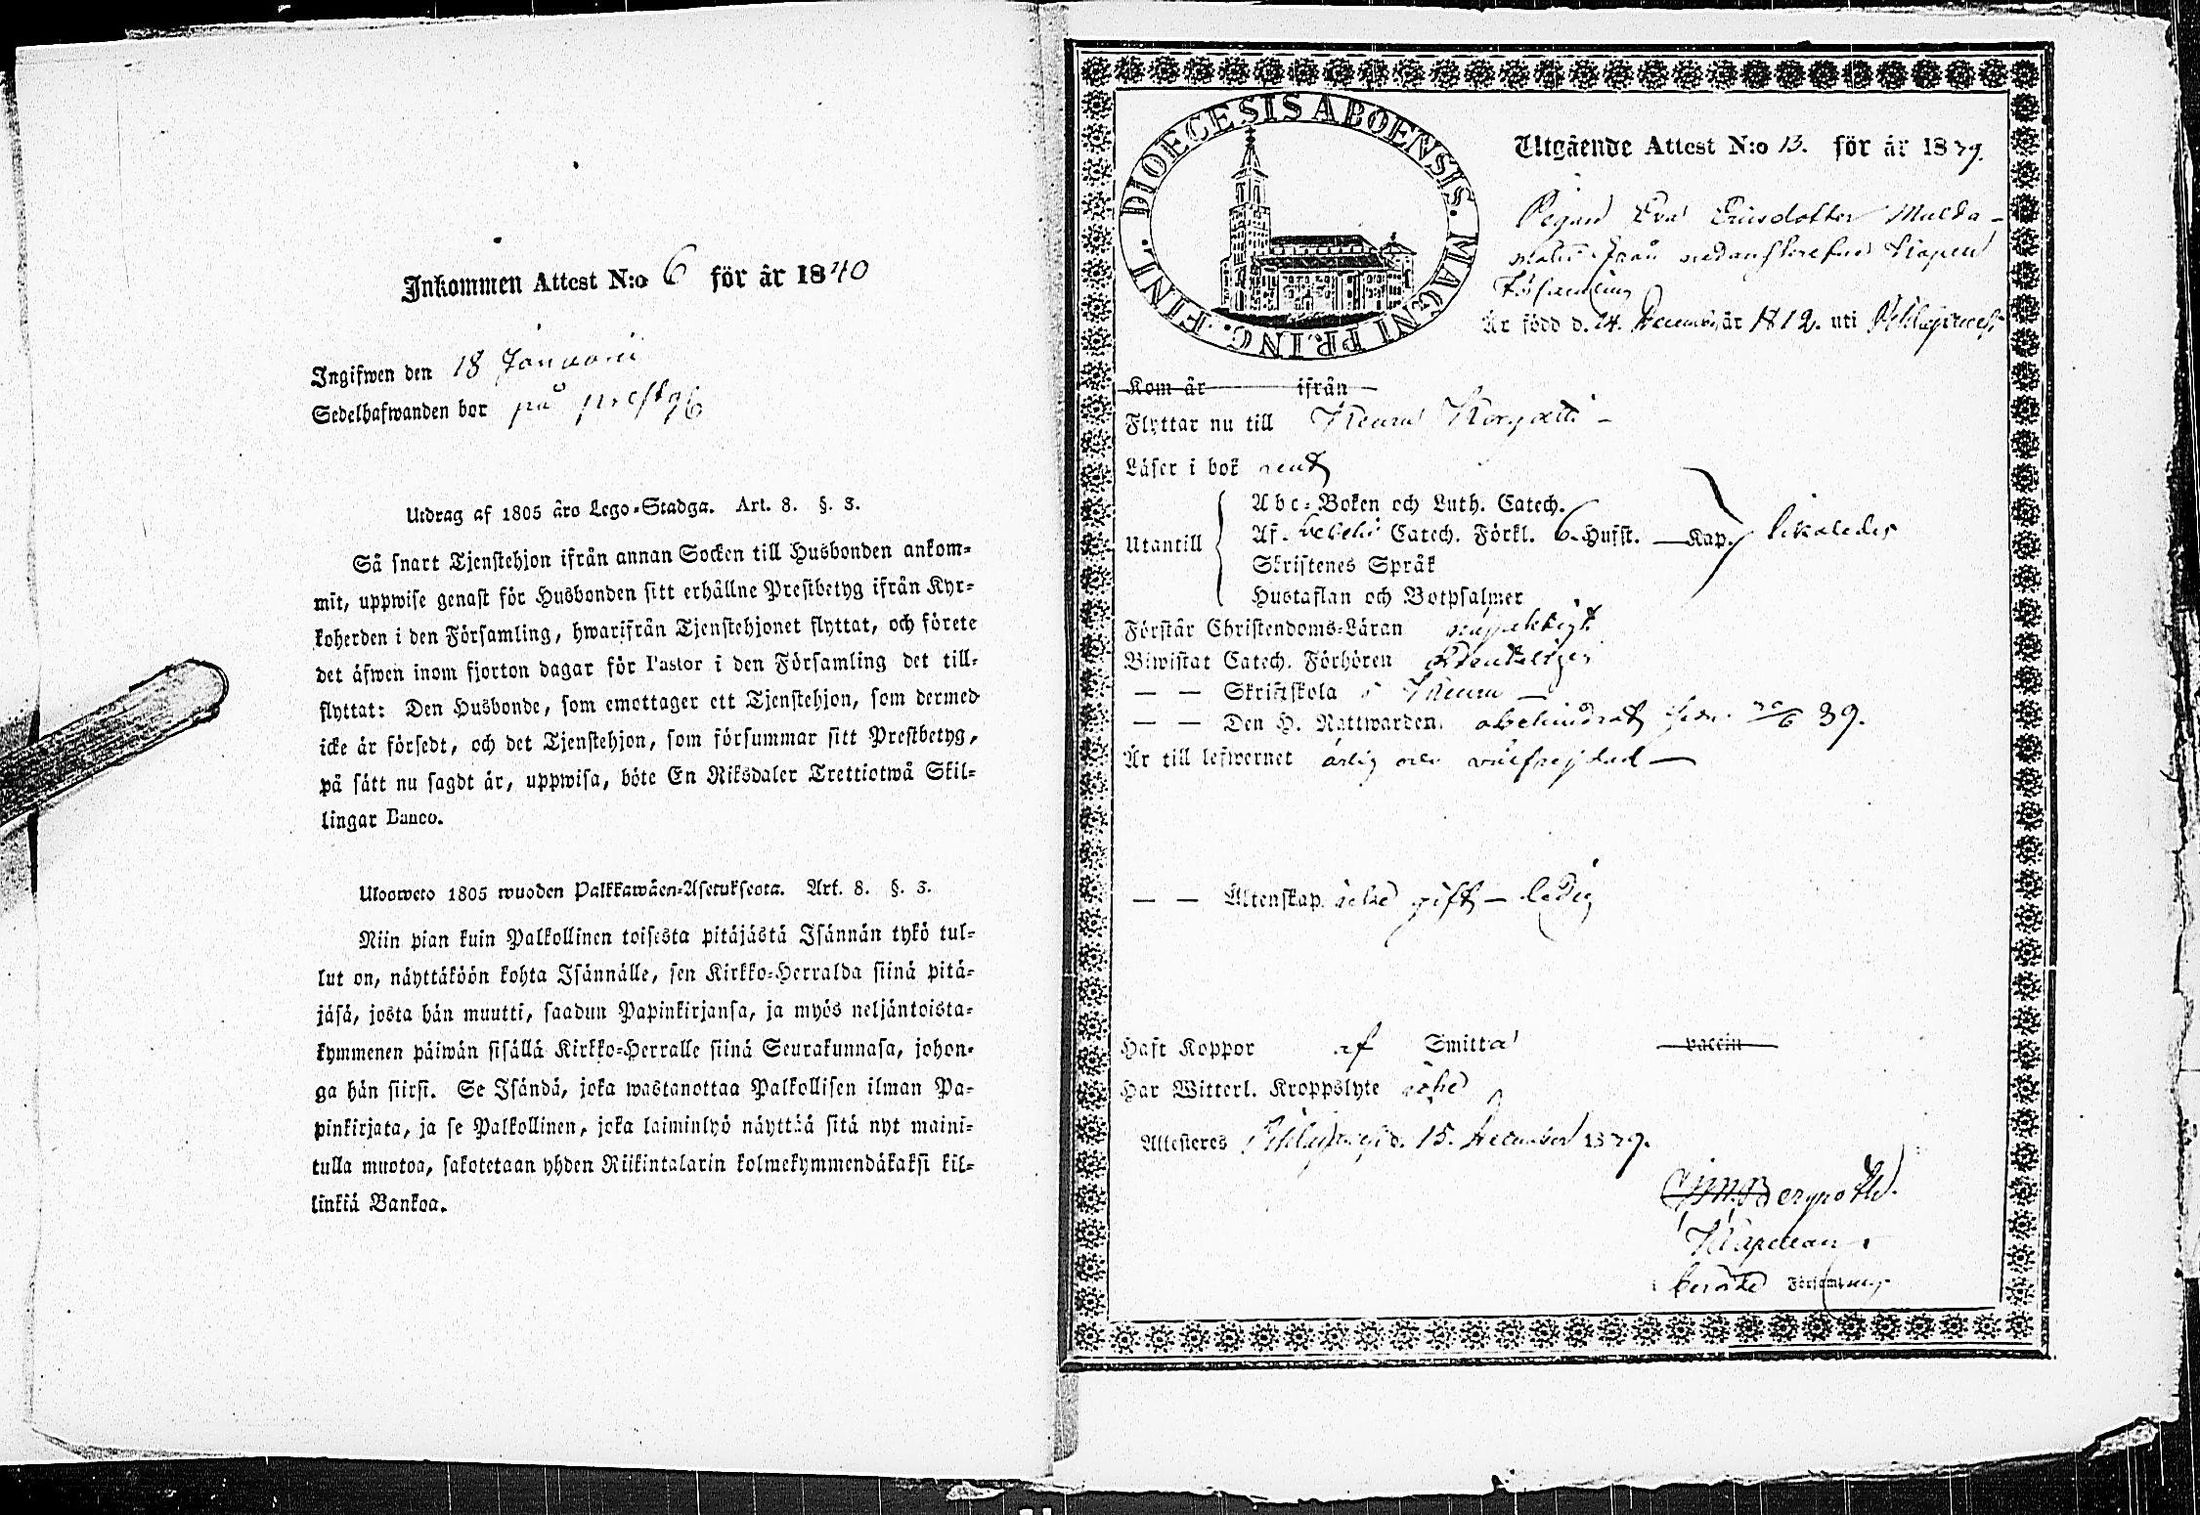 Inkommen Attest N:o 6 för år 1840
Ingifwen den 18 Januari
Sedelhafwanden bor på prestg
Utdrag af 1805 års Lego-Stadga. Art. 8. §. 3.
Så snart Tjenstehjon ifrån annan Socken till Husbonden ankom-
mit, uppwise genast för Husbonden sitt erhållne Prestbetyg ifrån Kyr-
koherden i den Församling, hwarifrån Tjenstehjonet flyttat, och förete
det äfwen inom fjorton dagar för Pastor i den Församling det till-
flyttat: Den Husbonde, som emottager ett Tjenstehjon, som dermed
icke är försedt, och det Tjenstehjon, som försummar sitt Prestbetyg,
på sätt nu sagdt är, uppwisa, böte En Riksdaler Trettiotwå Skil-
lingar Banco.
Ulosweto 1805 wuoden Palkkawäen-Asetuksesta. Art. 8. §. 3.
Niin pian kuin Palkollinen toisesta pitäjästä Isännän tykö tul-
lut on, näyttäköön kohta Isännälle, sen Kirkko-Herralda siinä pitä-
jäsä, josta hän muutti, saadun Papinkirjansa, ja myös neljäntoista-
kymmenen päiwän sisällä Kirkko-Herralle siinä Seurakunnasa, johon-
ga hän siirsi. Se Isändä, joka wastanottaa Palkollisen ilman Pa-
pinkirjata, ja se Palkollinen, joka laiminlyö näyttää sitä nyt maini-
tulla muotoa, sakotetaan yhden Riikintalarin kolmekymmendäkaksi kil-
linkiä Bankoa.
DIOECESIS ABOENSIS. MAGNI PRINC. FINL.
Utgående Attest N:o 13. för år 1839.
Pigan Eva Ericsdotter
från nedanskrefne Kapell
Församling
Är född d. 14. December år 1812. uti
Kom år ifrån
Flyttar nu till Keuru
Läser i bok rent
Utantill
Abc-Boken och Luth. Catech.
Af Catech. Förkl. 6 Hufst. — Kap. likaledes
Skriftenes Språk
Hustaflan och Botpsalmer
Förstår Christendoms-Läran nöjaktigt
Biwistat Catech. Förhören ordentligen
— — Skriftskola i Keuru —
— — Den H. Nattwarden. obehindrat sedn. 30/6 39.
Är till lefwernet ärlig och wälfrejdad —
— — Äktenskap icke gift — ledig
Haft Koppor af Smitta vaccin
Har Witterl. Kroppslyte icke
Attesteres d. 15. December 1839.
Bergroth.
Kapellan i
berörde Församling